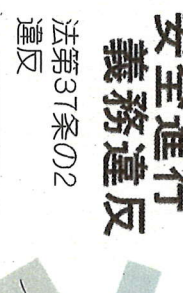 安全進行
義務違反
法第37条の2
違反